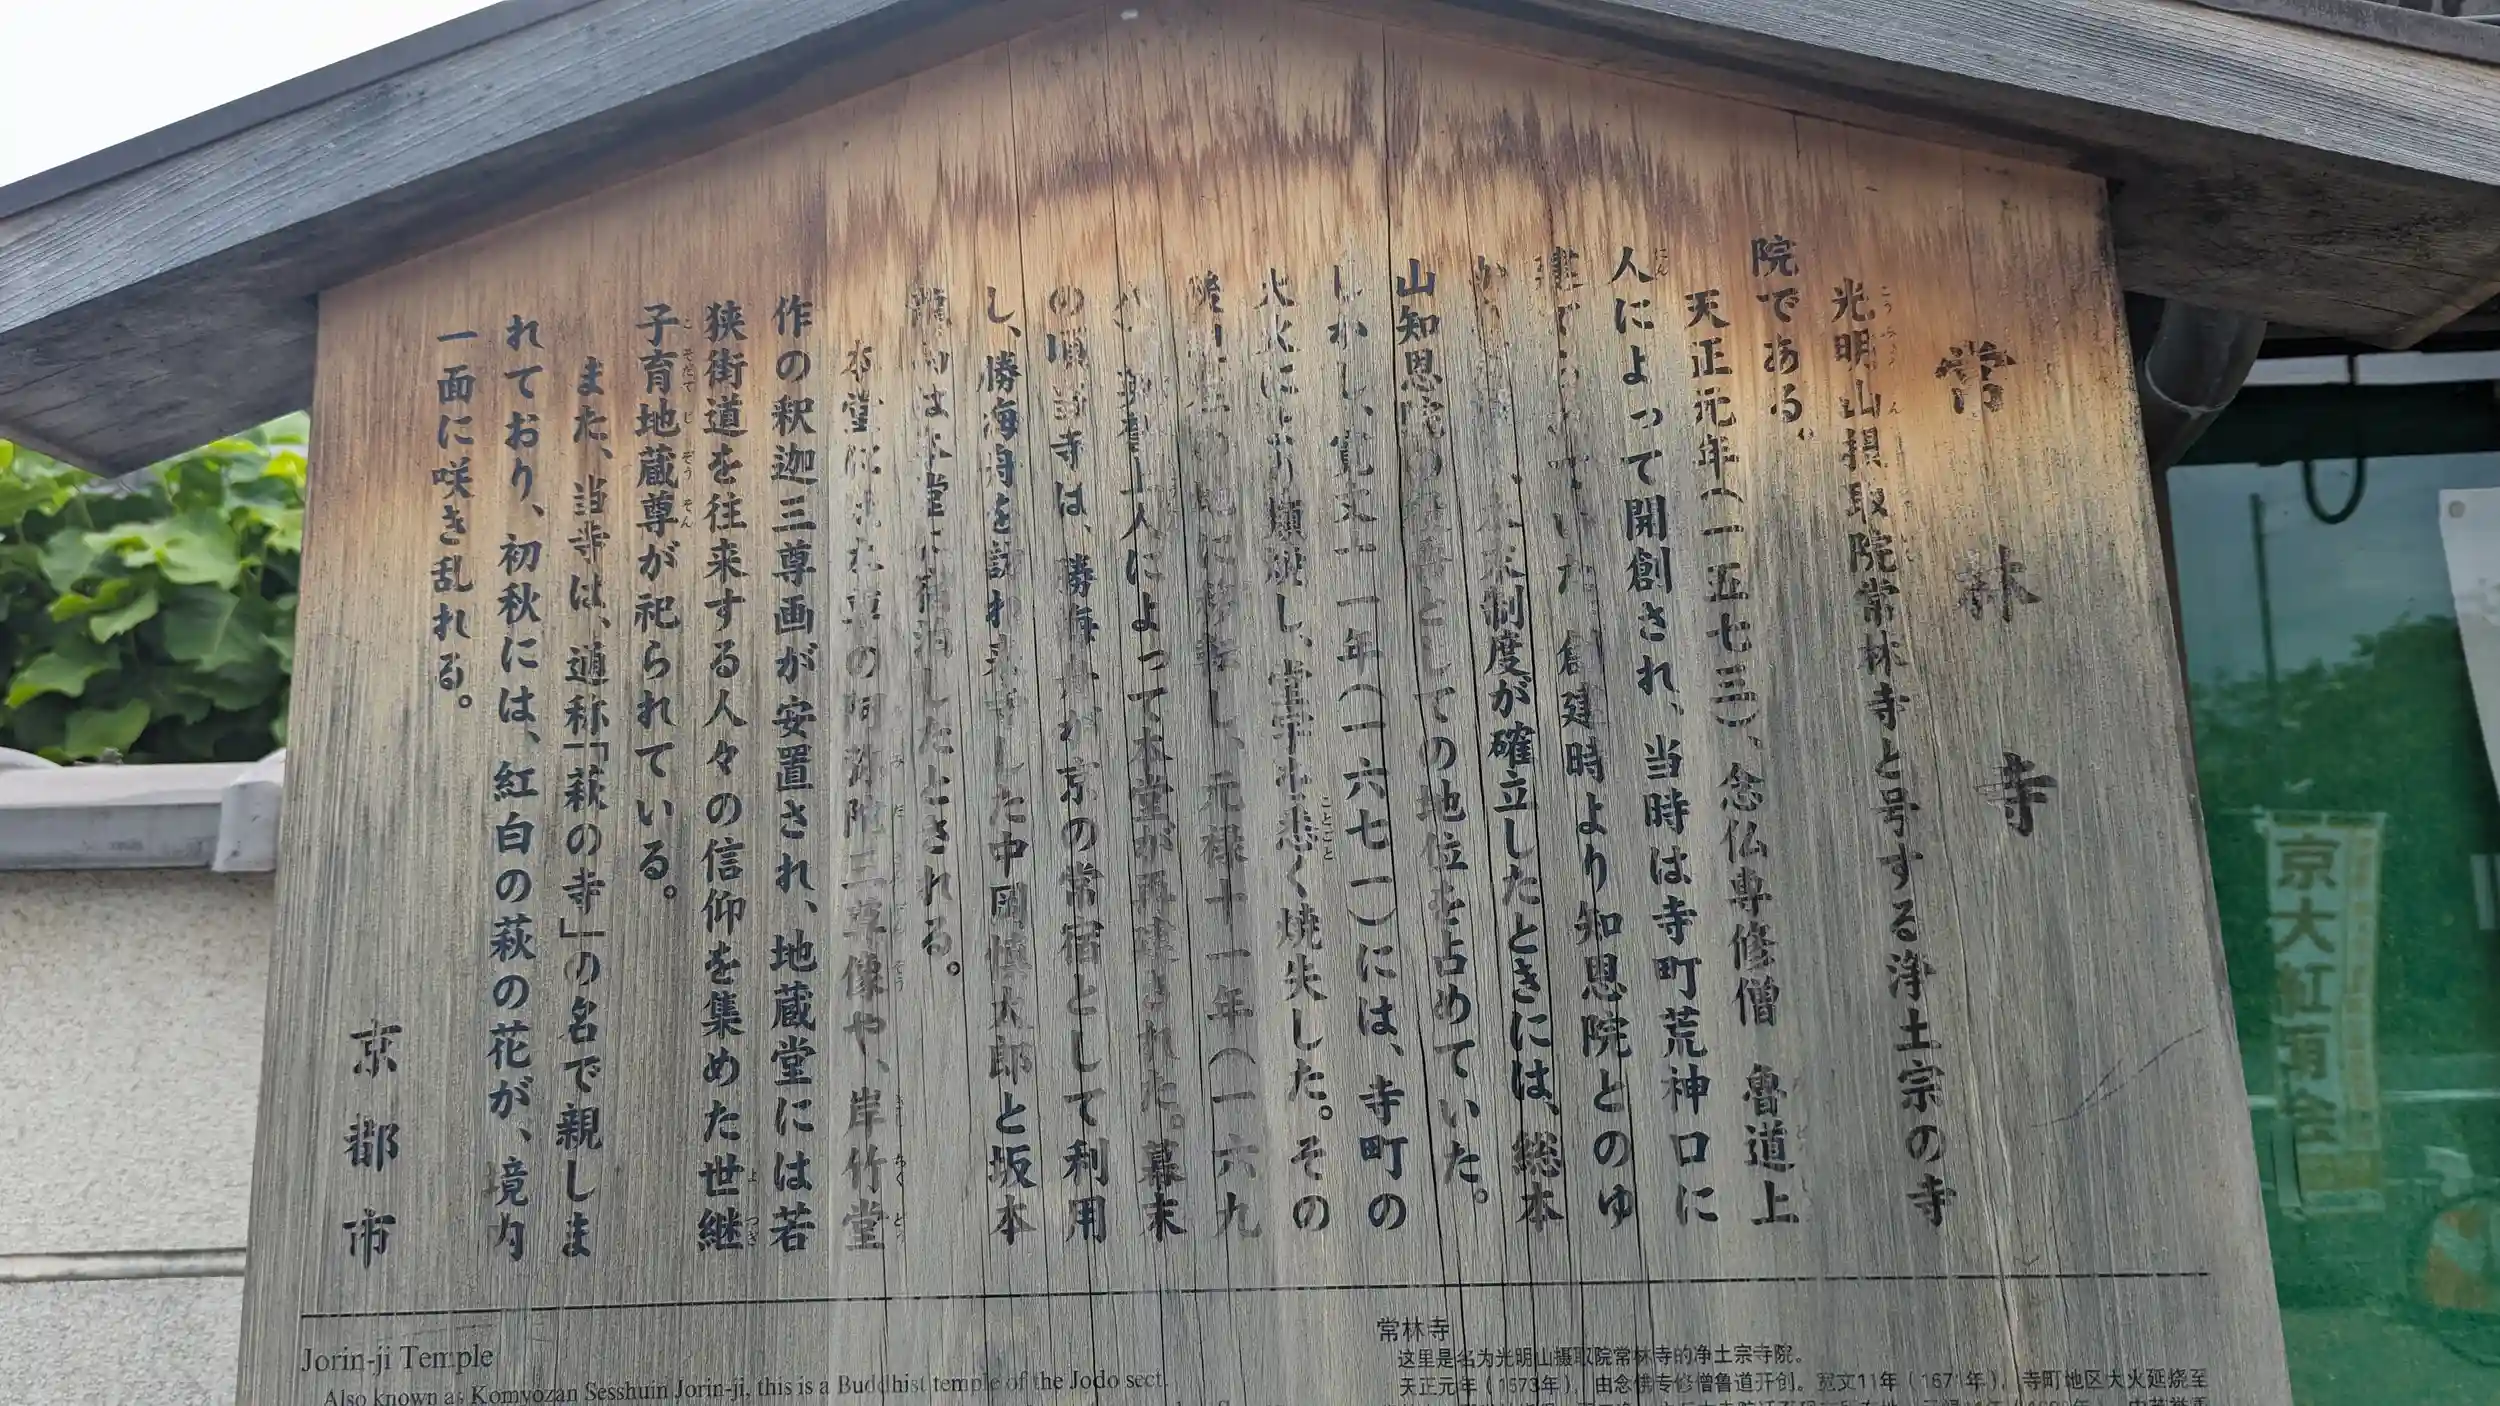 常林寺
光明山摂取院常林寺と号する浄土宗の寺
院である。
天正元年(一五七三)、念仏専修僧 魯道上
人によって開創され、当時は寺町荒神口に
建てられていた。創建時より知恩院とのゆ
制度が確立したときには、総本
山知恩院の としての地位を占めていた。
しかし、寛文十一年(一六七一)には、寺町の
大火により類焼し、堂宇は悉く焼失した。その
後 の地に移転し、元禄十一年(一六九
上人によって本堂が再建された。幕末
の頃当寺は、勝海舟が京の常宿として利用
し、勝海舟を訪れ来寺した中岡慎太郎と坂本
龍馬は本堂に宿泊したとされる。
本堂には の阿弥陀三尊像や、岸竹堂
作の釈迦三尊画が安置され、地蔵堂には若
狭街道を往来する人々の信仰を集めた世継
子育地蔵尊が祀られている。
また、当寺は、通称「萩の寺」の名で親しま
れており、初秋には、紅白の萩の花が、境内
一面に咲き乱れる。
京都市
Jorin-ji Temple
Also known as Komyozan Sesshuin Jorin-ji, this is a Buddhist temple of the Jodo sect.
常林寺
这里是名为光明山摄取院常林寺的净土宗寺院。
天正元年(1573年)，由念佛专修僧鲁道开创。宽文11年(1671年)，寺町地区大火延烧至
京大紅